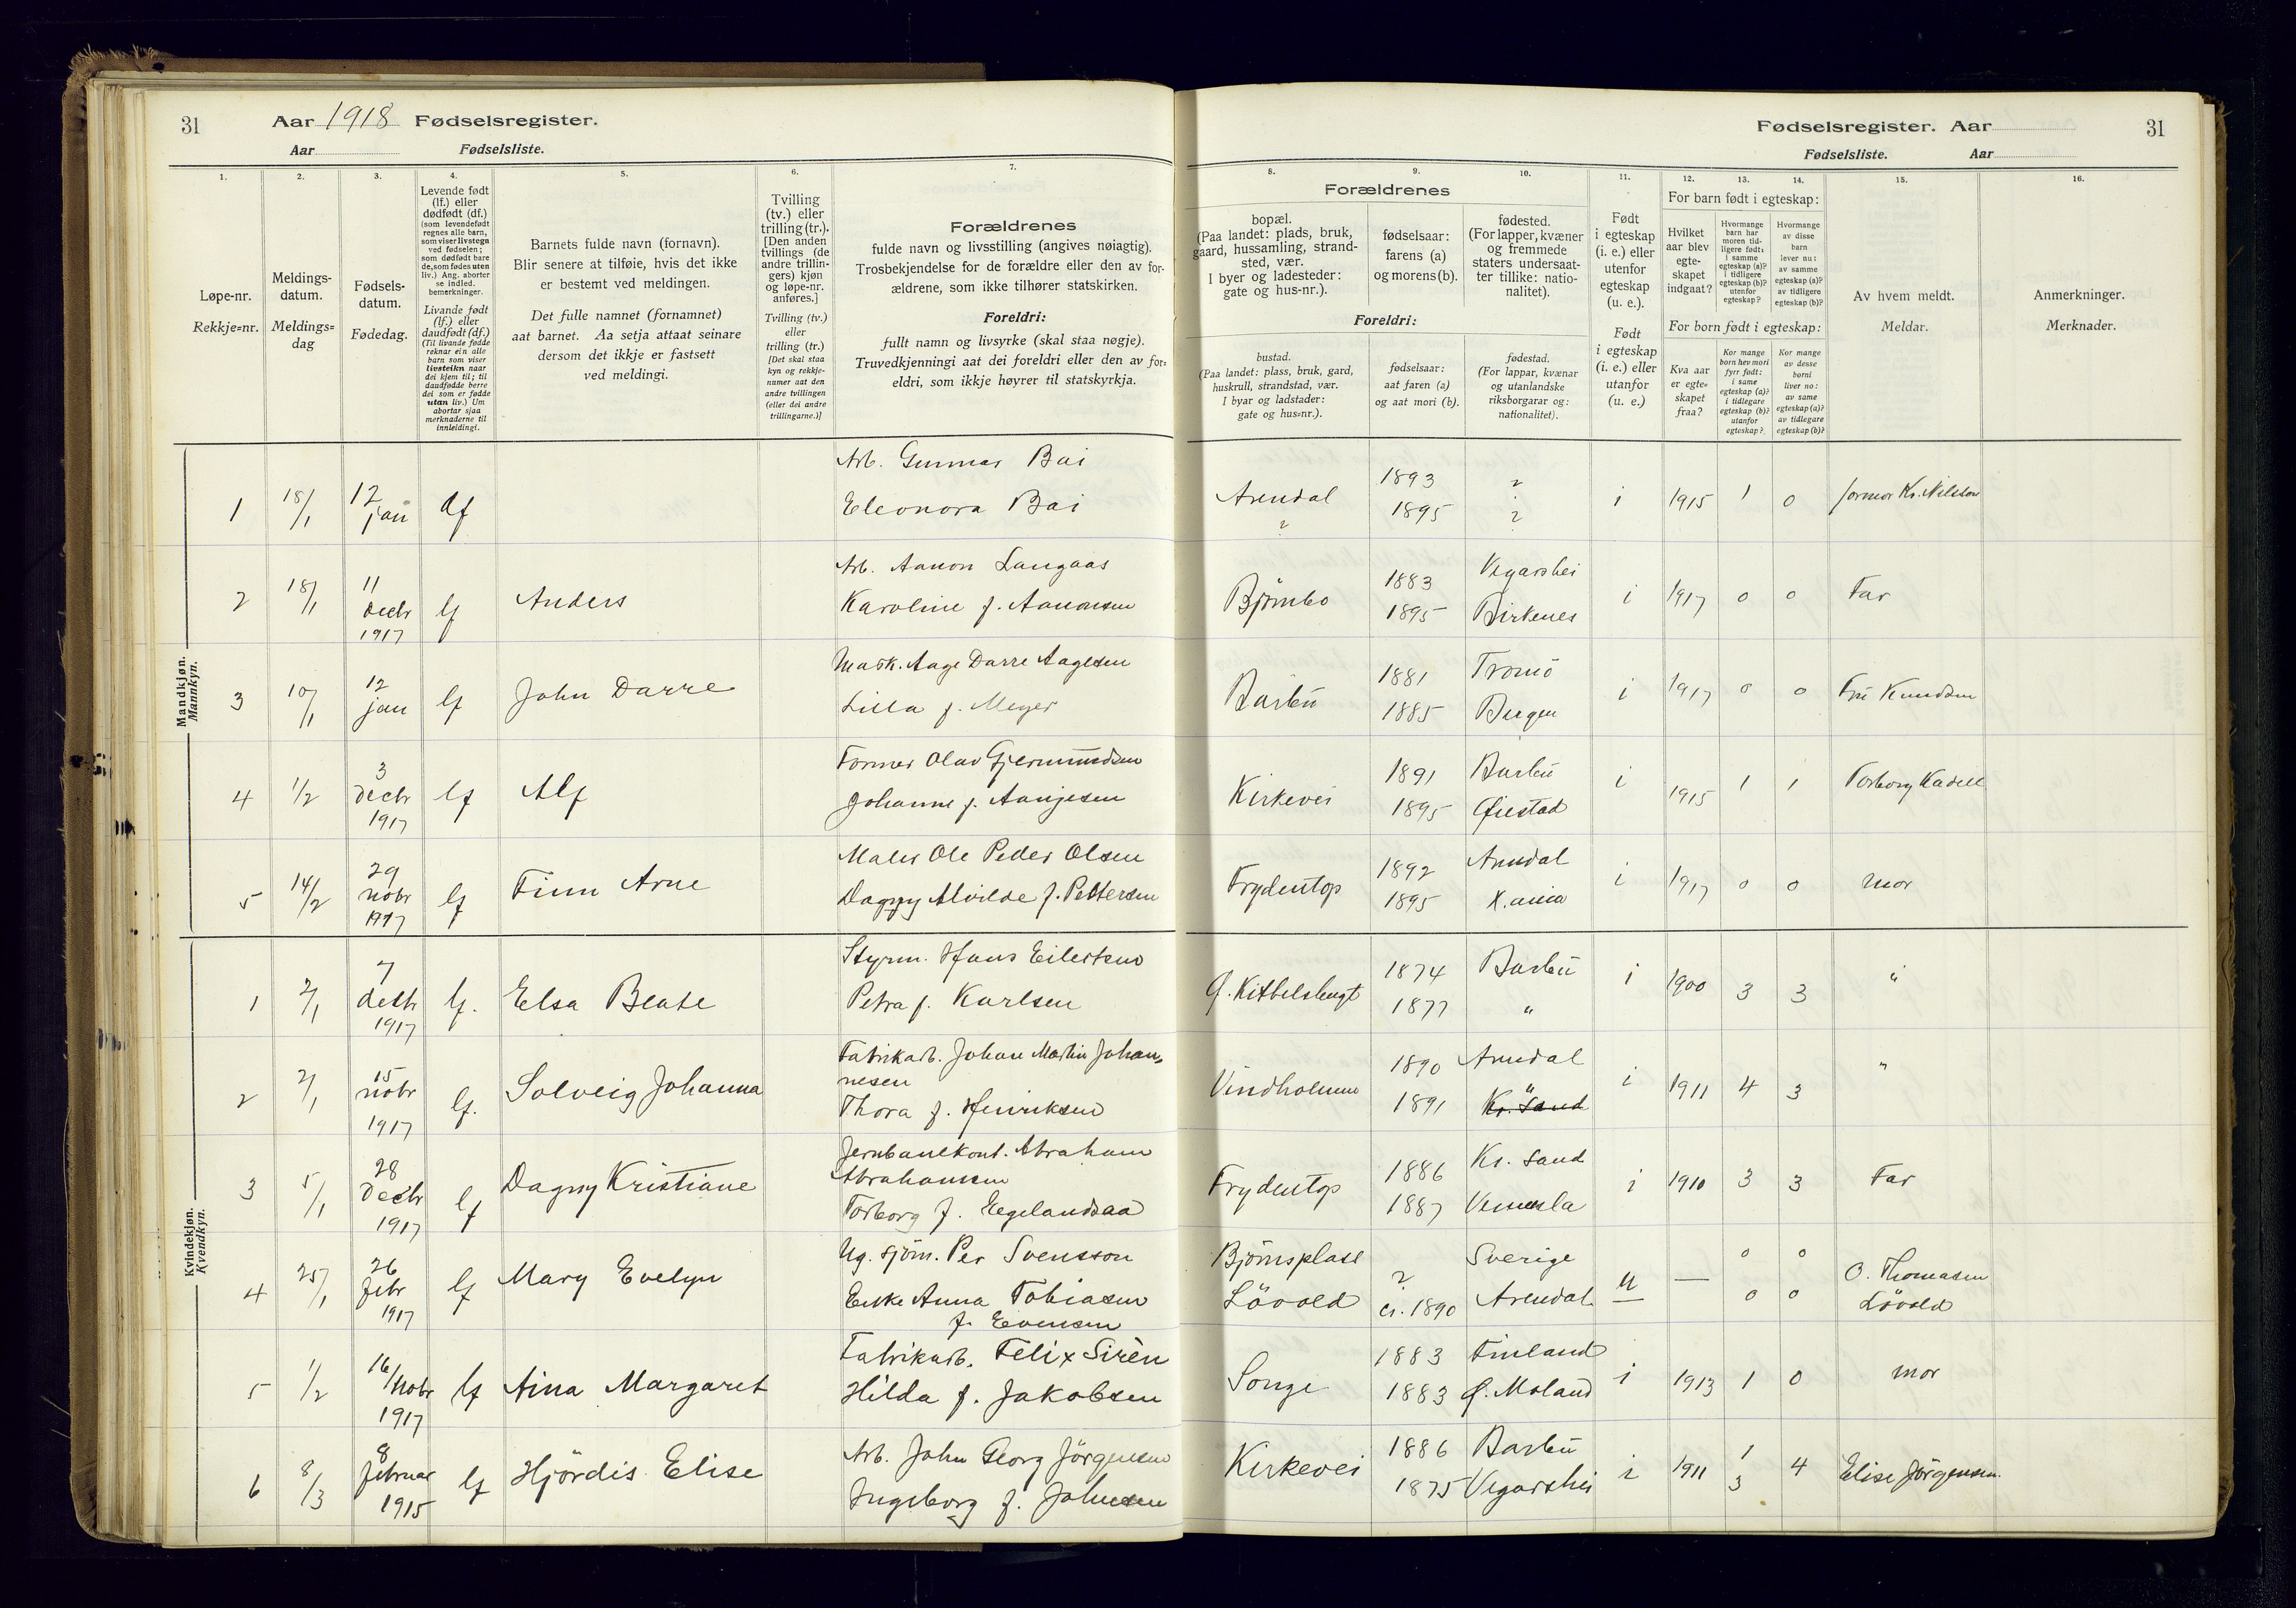 31 Aar 1918 Fødselsregister.
Aar Fødselsliste.
Fødselsregister. Aar 31
Fødselsliste. Aar
1. 2. 3. 4. 5. 6. 7.
8. 9. 10. 11. 12. 13. 14. 15. 16.
Løpe-nr.
Rekkje=nr.
Meldings-
datum.
Meldings=
dag
Fødsels-
datum.
Fødedag.
Levende født
(lf.) eller
dødfødt (df.)
(som levendefødt
regnes alle barn,
som viser livstegn
ved fødselen;
som dødfødt bare
de, som fødes uten
liv.) Ang. aborter
se indled.
bemerkninger.
Livande født
(lf.) eller
daudfødt (df.)
(Til livande fødde
reknar ein alle
barn som viser
livsteikn naar
dei kjem til; til
daudfødde berre
dei som er fødde
utan liv.) Um
abortar sjaa
merknaderne til
innleidingi.
Barnets fulde navn (fornavn).
Blir senere at tilføie, hvis det ikke
er bestemt ved meldingen.
Det fulle namnet (fornamnet)
aat barnet. Aa setja attaat seinare
dersom det ikkje er fastsett
ved meldingi.
Tvilling
(tv.) eller
trilling (tr.).
[Den anden
tvillings (de
andre trillin-
gers) kjøn
og løpe-nr.
anføres.]
Tvilling (tv.)
eller
trilling (tr.)
[Det skal staa
kyn og rekkje-
numer aat den
andre tvillingen
(eller dei andre
trillingarne.)]
Forældrenes
fulde navn og livsstilling (angives nøiagtig).
Trosbekjendelse for de forældre eller den av for-
ældrene, som ikke tilhører statskirken.
Foreldri:
fullt namn og livsyrke (skal staa nøgje).
Truvedkjenningi aat dei foreldri eller den av for=
eldri, som ikkje høyrer til statskyrkja.
Forældrenes
bopæl.
(Paa landet: plads, bruk,
gaard, hussamling, strand-
sted, vær.
I byer og ladesteder:
gate og hus-nr.).
fødselsaar:
farens (a)
og morens (b).
fødested.
(For lapper, kvæner
og fremmede
staters undersaat-
ter tillike: natio-
nalitet).
Foreldri:
bustad.
(Paa landet: plass, bruk, gard,
huskrull, strandstad, vær.
I byar og ladstader:
gate og hus=nr.).
fødselsaar:
aat faren (a)
og aat mori (b).
fødestad.
(For lappar, kvænar
og utanlandske
riksborgarar og:
nationalitet).
Født
i egteskap
(i. e.) eller
utenfor
egteskap
(u. e.).
Født
i egteskap
(i. e.) eller
utanfor
(u. e.)
For barn født i egteskap:
Hvilket
aar blev
egte-
skapet
indgaat?
Hvormange
barn har
moren tid-
ligere født:
i samme
egteskap (a)?
i tidligere
egteskap (b)?
utenfor
egteskap?
Hvormange
av disse
barn
lever nu:
av samme
egteskap (a)?
av tidligere
egteskap (b)?
For born født i egteskap:
Kva aar
er egte=
skapet
fraa?
Kor mange
born hev mori
fyrr født:
i same
egteskap (a)?
i tidlegare
egteskap (b)?
utanfor
egteskap?
Kor mange
av desse
borni
liver no:
av same
egteskap (a)?
av tidlegare
egteskap (b)?
Av hvem meldt.
Meldar.
Anmerkninger.
Merknader.
Mandkjøn.
Mannkyn.
1 18/1 12 jan df Arb. Gunnar Bai
Eleonora Bai
Arendal ? 1893 ? 1895 ? i 1915 1 0 Jormor Kr. Nilsson
2 18/1 11 decbr 1917 lf Anders Arb. Aanon Langaas
Karoline f. Aanonsen
Bjömbo 1883 Vegarshei 1895 Birkenes i 1917 0 0 Far
3 10/1 12 jan lf John Darre Mask. Aage Darre Aagesen
Lilla f. Meyer
Barbu 1881 Tromö 1885 Bergen i 1917 0 0 Fru Knudsen
4 1/2 3 decbr 1917 lf Alf Former Olav Gjermundsen
Johanne f. Aanjesen
Kirkevei 1891 Barbu 1895 Øiestad i 1915 1 1 Torborg Kadell
5 14/2 29 nobr 1917 lf Finn Arne Maler Ole Peder Olsen
Dagny Alvilde f. Pettersen
Frydentop 1892 Arendal 1895 K.ania i 1917 0 0 mor
Kvindekjøn.
Kvendkyn.
1 2/1 7 decbr 1917 lf. Elsa Beate Styrm. Hans Eilertsen
Petra f. Karlsen
Ø. Kittelsbugt 1874 Barbu 1877 " i 1900 3 3 "
2 2/1 15 nobr 1917 lf. Solveig Johanna Fabrikarb. Johan Martin Johan-
nesen
Thora f. Henriksen
Vindholmen 1890 Arendal 1891 " Kr. Sand i 1911 4 3 "
3 5/1 28 decbr 1917 lf Dagny Kristiane Jernbanekont. Abraham
Abrahamsen
Torborg f. Egelandsaa
Frydentop 1886 Kr. sand 1887 Vennesla i 1910 3 3 Far
4 25/1 26 febr 1917 lf Mary Evelyn Ug. sjöm. Per Svensson
Enke Anna Tobiasen
f. Evensen
Bjömsplass ? Sverige 0 0
Lövold ci. 1890 Arendal u — 0 0 O. Thomasen
Lövold
5 1/2 16/nobr 1917 lf Aina Margaret Fabrikarb. Felix Sirèn
Hilda f. Jakobsen
Songe 1883 Finland 1883 Ø. Moland i 1913 1 0 mor
6 8/3 8 februar 1915 lf Hjördis Elise Arb. John Georg Jörgensen
Ingeborg f. Johnsen
Kirkevei 1886 Barbu 1875 Vegarshei i 1911 1 3 4 Elise Jörgensen